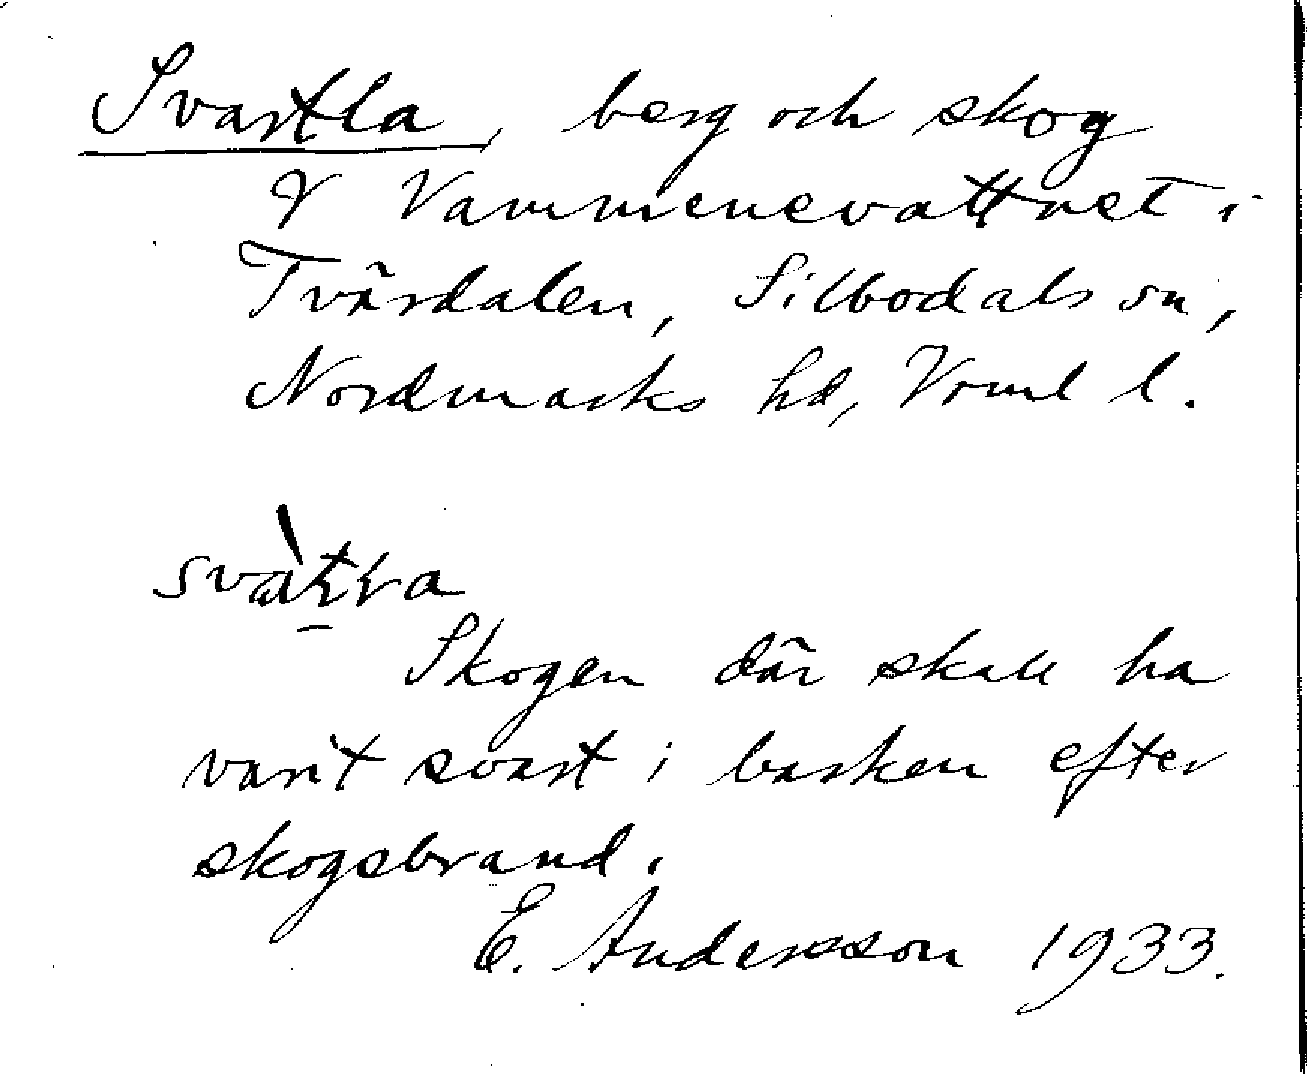 Svartla, berg och skog
V Vammenevattnet i
Tvärdalen, Silbodals sn,
Nordmarks hd, Vrml l.
Skogen där skall ha
varit svart i barken efter
skogsbrand.
E. Andersson 1933.